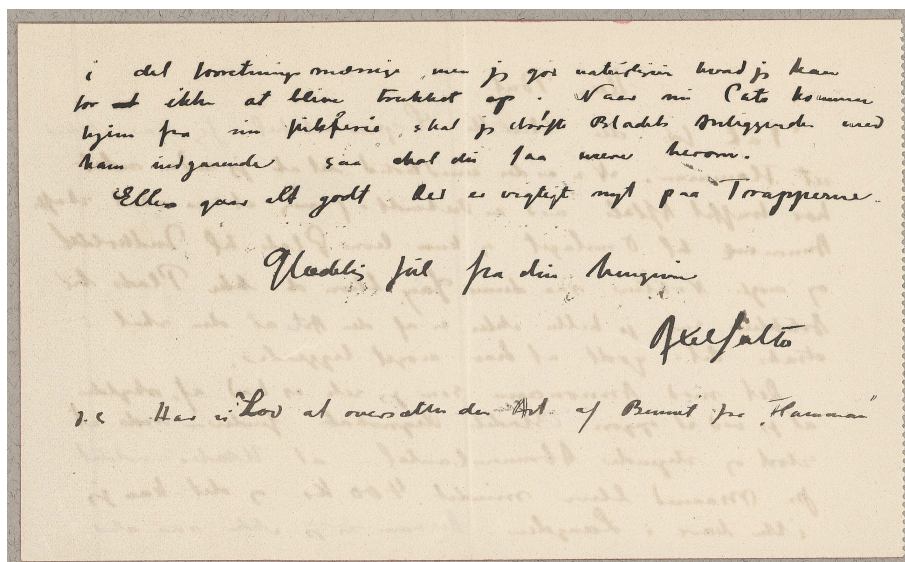 i det forretningsmæssige, men jeg gør naturligvis hvad jeg kan
for ikke at blive trukket op. Naar nu Cato kommer
hjem fra sin juleferie, skal jeg drøfte Bladets Anliggender med
ham indgaaende saa skal du faa mere herom.
Ellers gaar alt godt det er vigtigt nyt paa Trapperne.
Glædelig Jul fra din hengivne
Axel Salto
P.S. Har vi Lov at oversætte den Art. af Bennet fra "Hamman"